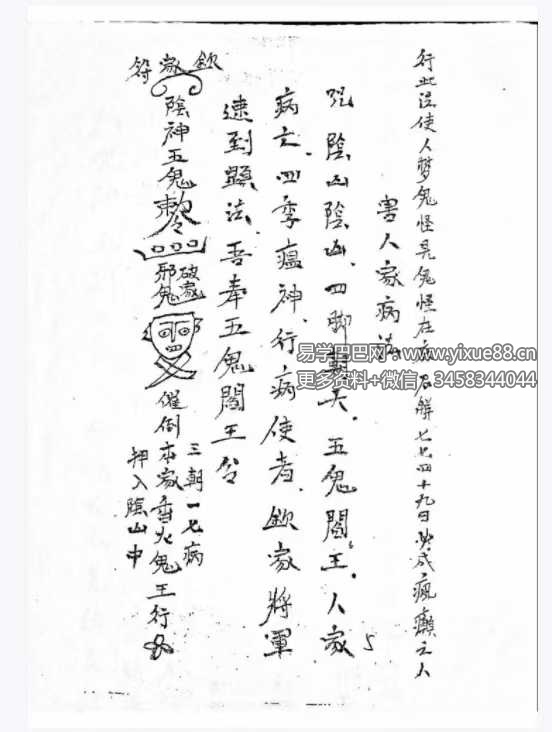 行此法使人梦鬼怪見鬼怪在家若解七七四十九日變成瘋癲之人
害人家病法
咒 陰山陰山、四脚朝天、五鬼閻王、人家
病亡、四季瘟神、行病使者、欽家將軍
速到顯法、吾奉五鬼閻王令
欽家符
陰神五鬼敕令
破家
邪鬼
催倒本家香火鬼王行
三朝一七病
押入陰山中
5
易学巴巴网 www.yixue88.cn
更多资料+微信：3458344044